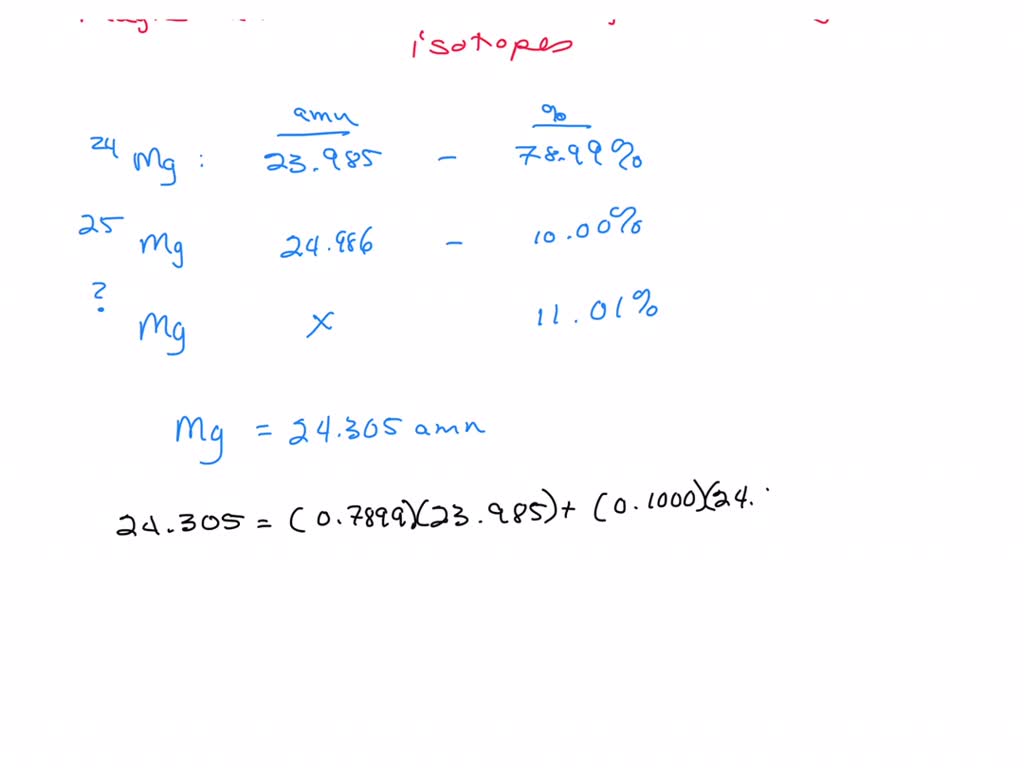 isotopes
amu %
24 Mg : 23.985 - 78.99%
25 Mg 24.986 - 10.00%
? Mg x 11.01%
Mg = 24.305 amu
24.305 = (0.7899)(23.985) + (0.1000)(24.